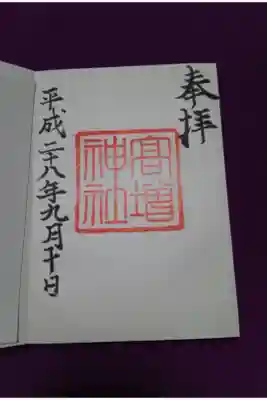 奉拝
髙増神社
平成二十八年九月十日